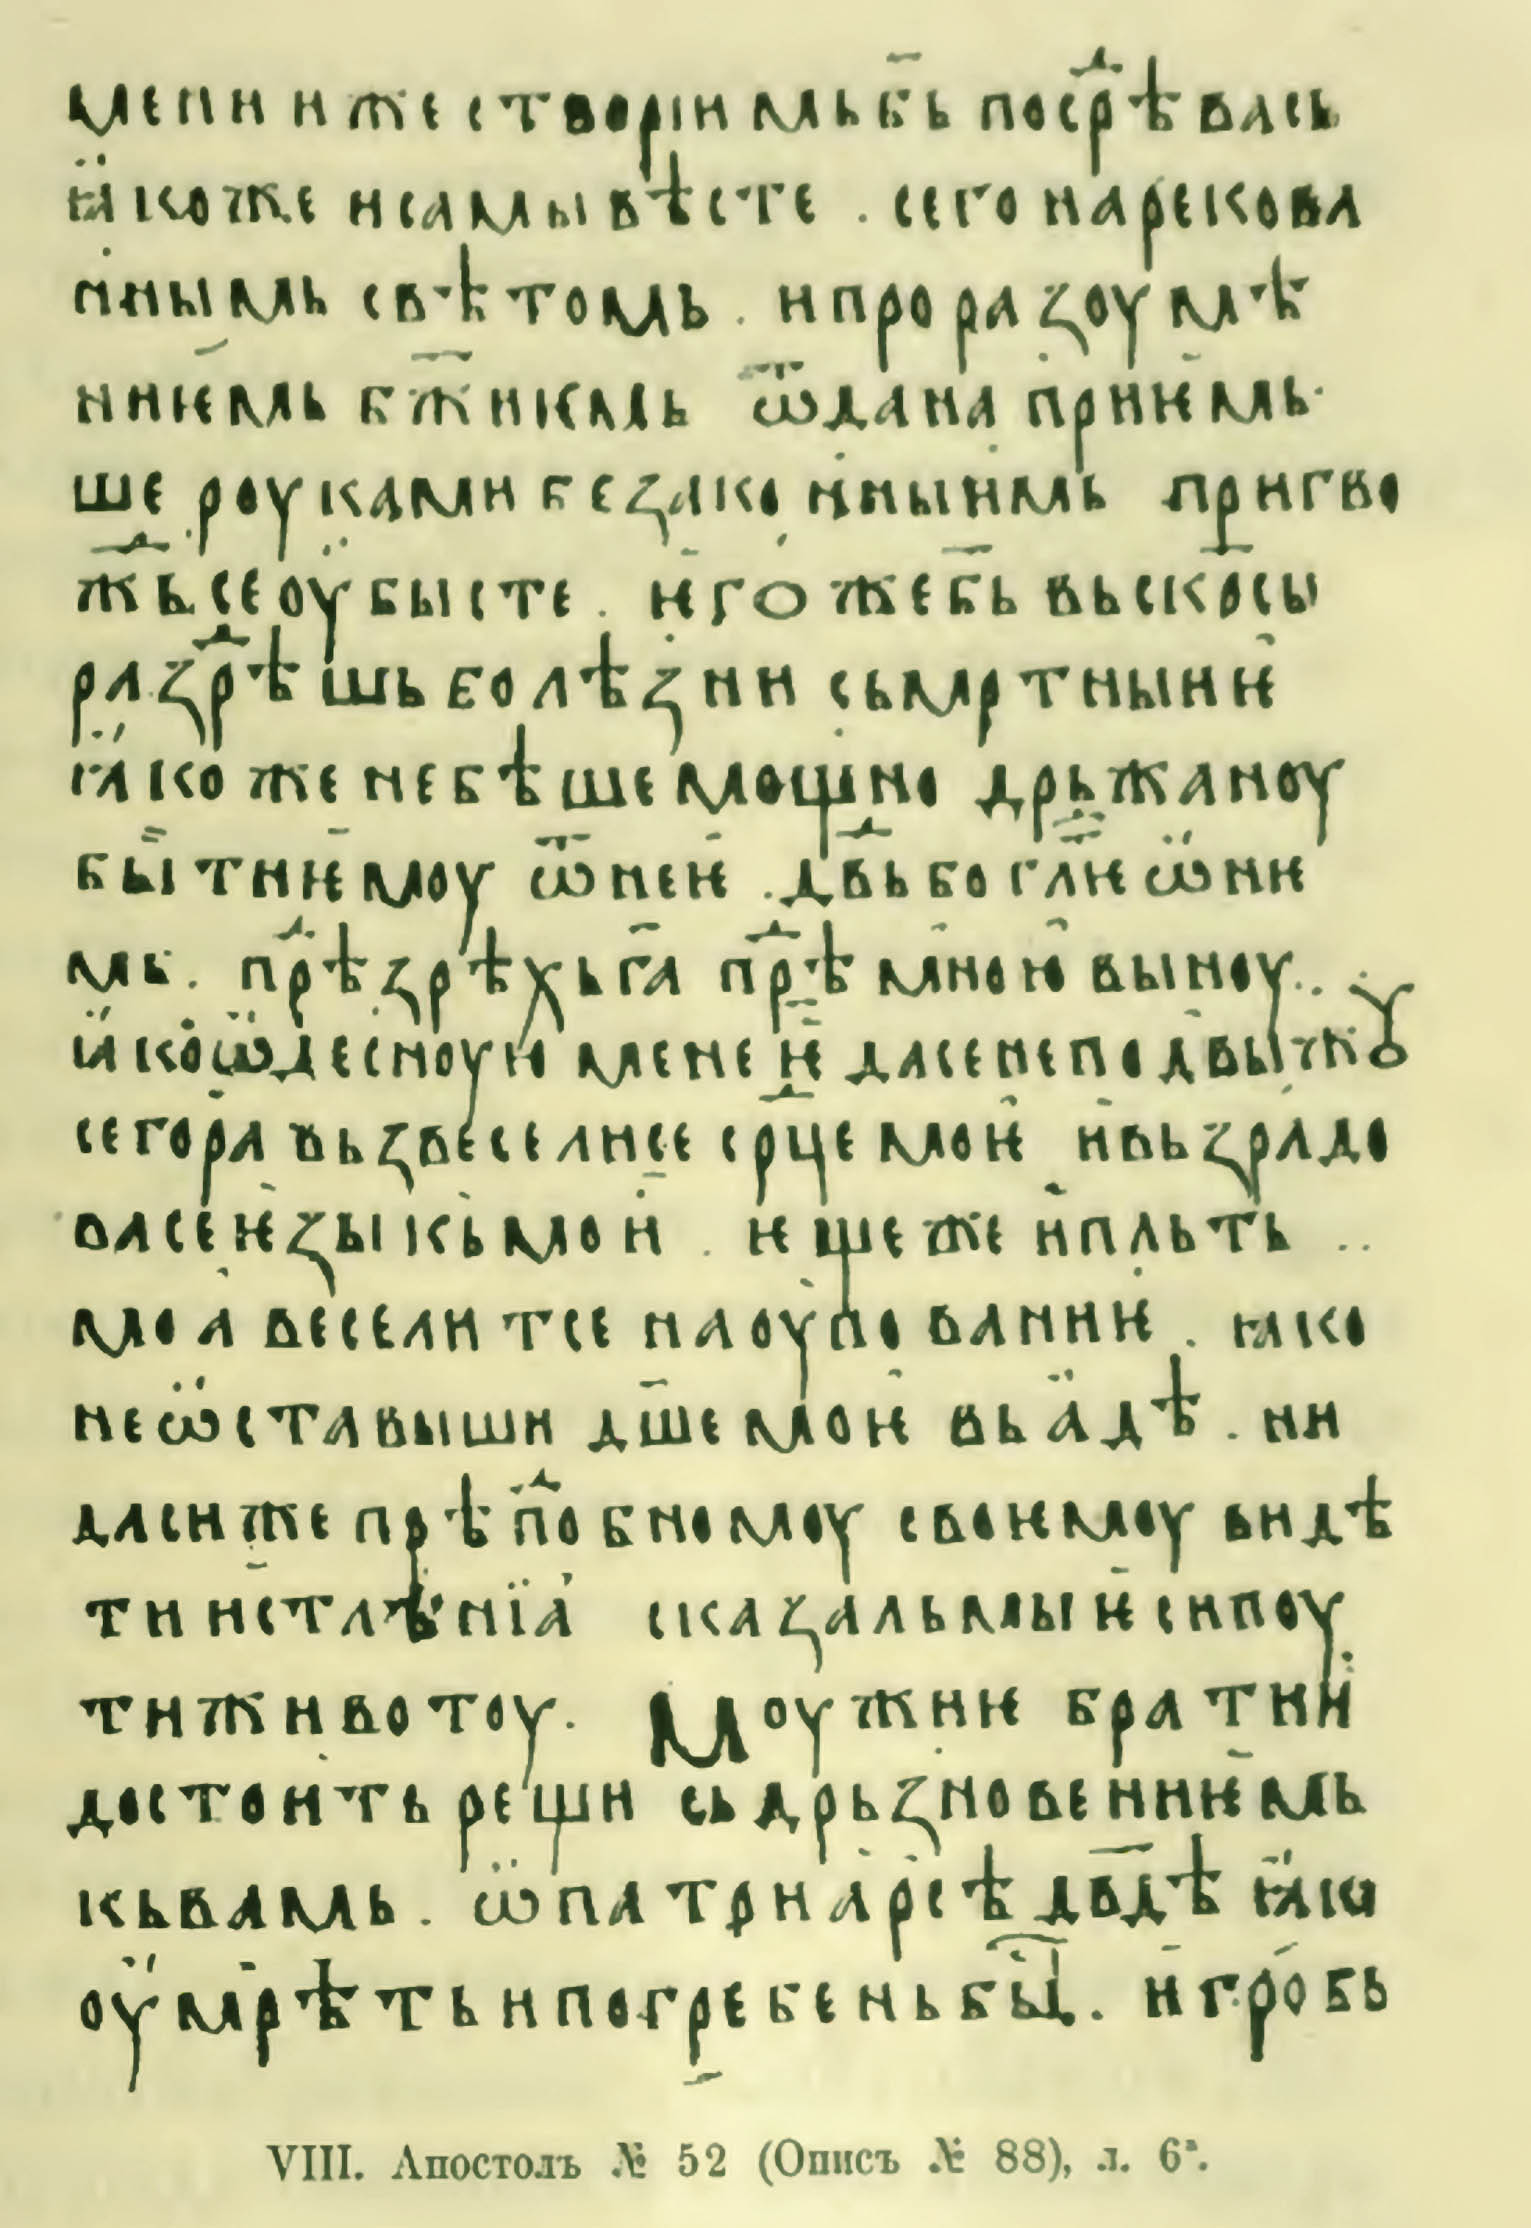 мени иже створїи мь б҃ь посрⷣѣ вась
ꙗкоже и самы вѣсте . сего нарекова
ннымь свѣтомь . и проразоумѣ
ниѥмь бж҃иѥмь ѿдана приѥмь
ше роуками безаконныимь пригво
жⷣьсе оубысте . ѥгоже б҃ь вьскрⷭ҇сы
разрⷣѣшь болѣзни сьмртныиѥ
ꙗкоже не бѣше мощно дрьжаноу
быти ѥмоу ѿ неѥ . дв҃дь бо гл҃ѥть ѡ ни
мь . прⷣѣзрѣхь г҃а прⷣѣ мною выноу ..
ꙗко ѡдесноую мене ѥⷭ҇ да се не подвыжꙋ
сего ра вьзвеселисе срⷣце моѥ и вьзрадо
васе ѥзыкь мои . ѥще же и пльть ..
моа веселитсе на оупованиѥ . ꙗко
не ѡставыши дш҃е моѥ вь адѣ . ни
даси же прѣпоⷣбномоу своѥмоу видѣ
ти истлѣнїа сказаль мы ѥси поу
ти животоу . Моужиѥ братиѥ
достоить рещи сь дрьзновениѥмь
кь вамь . ѡ патриарсѣ дв҃дѣ ꙗко
оумрѣть и погребень бы҃ . и гробь
VIII. Апостолъ № 52 (Описъ № 88), л. 6ᵃ.